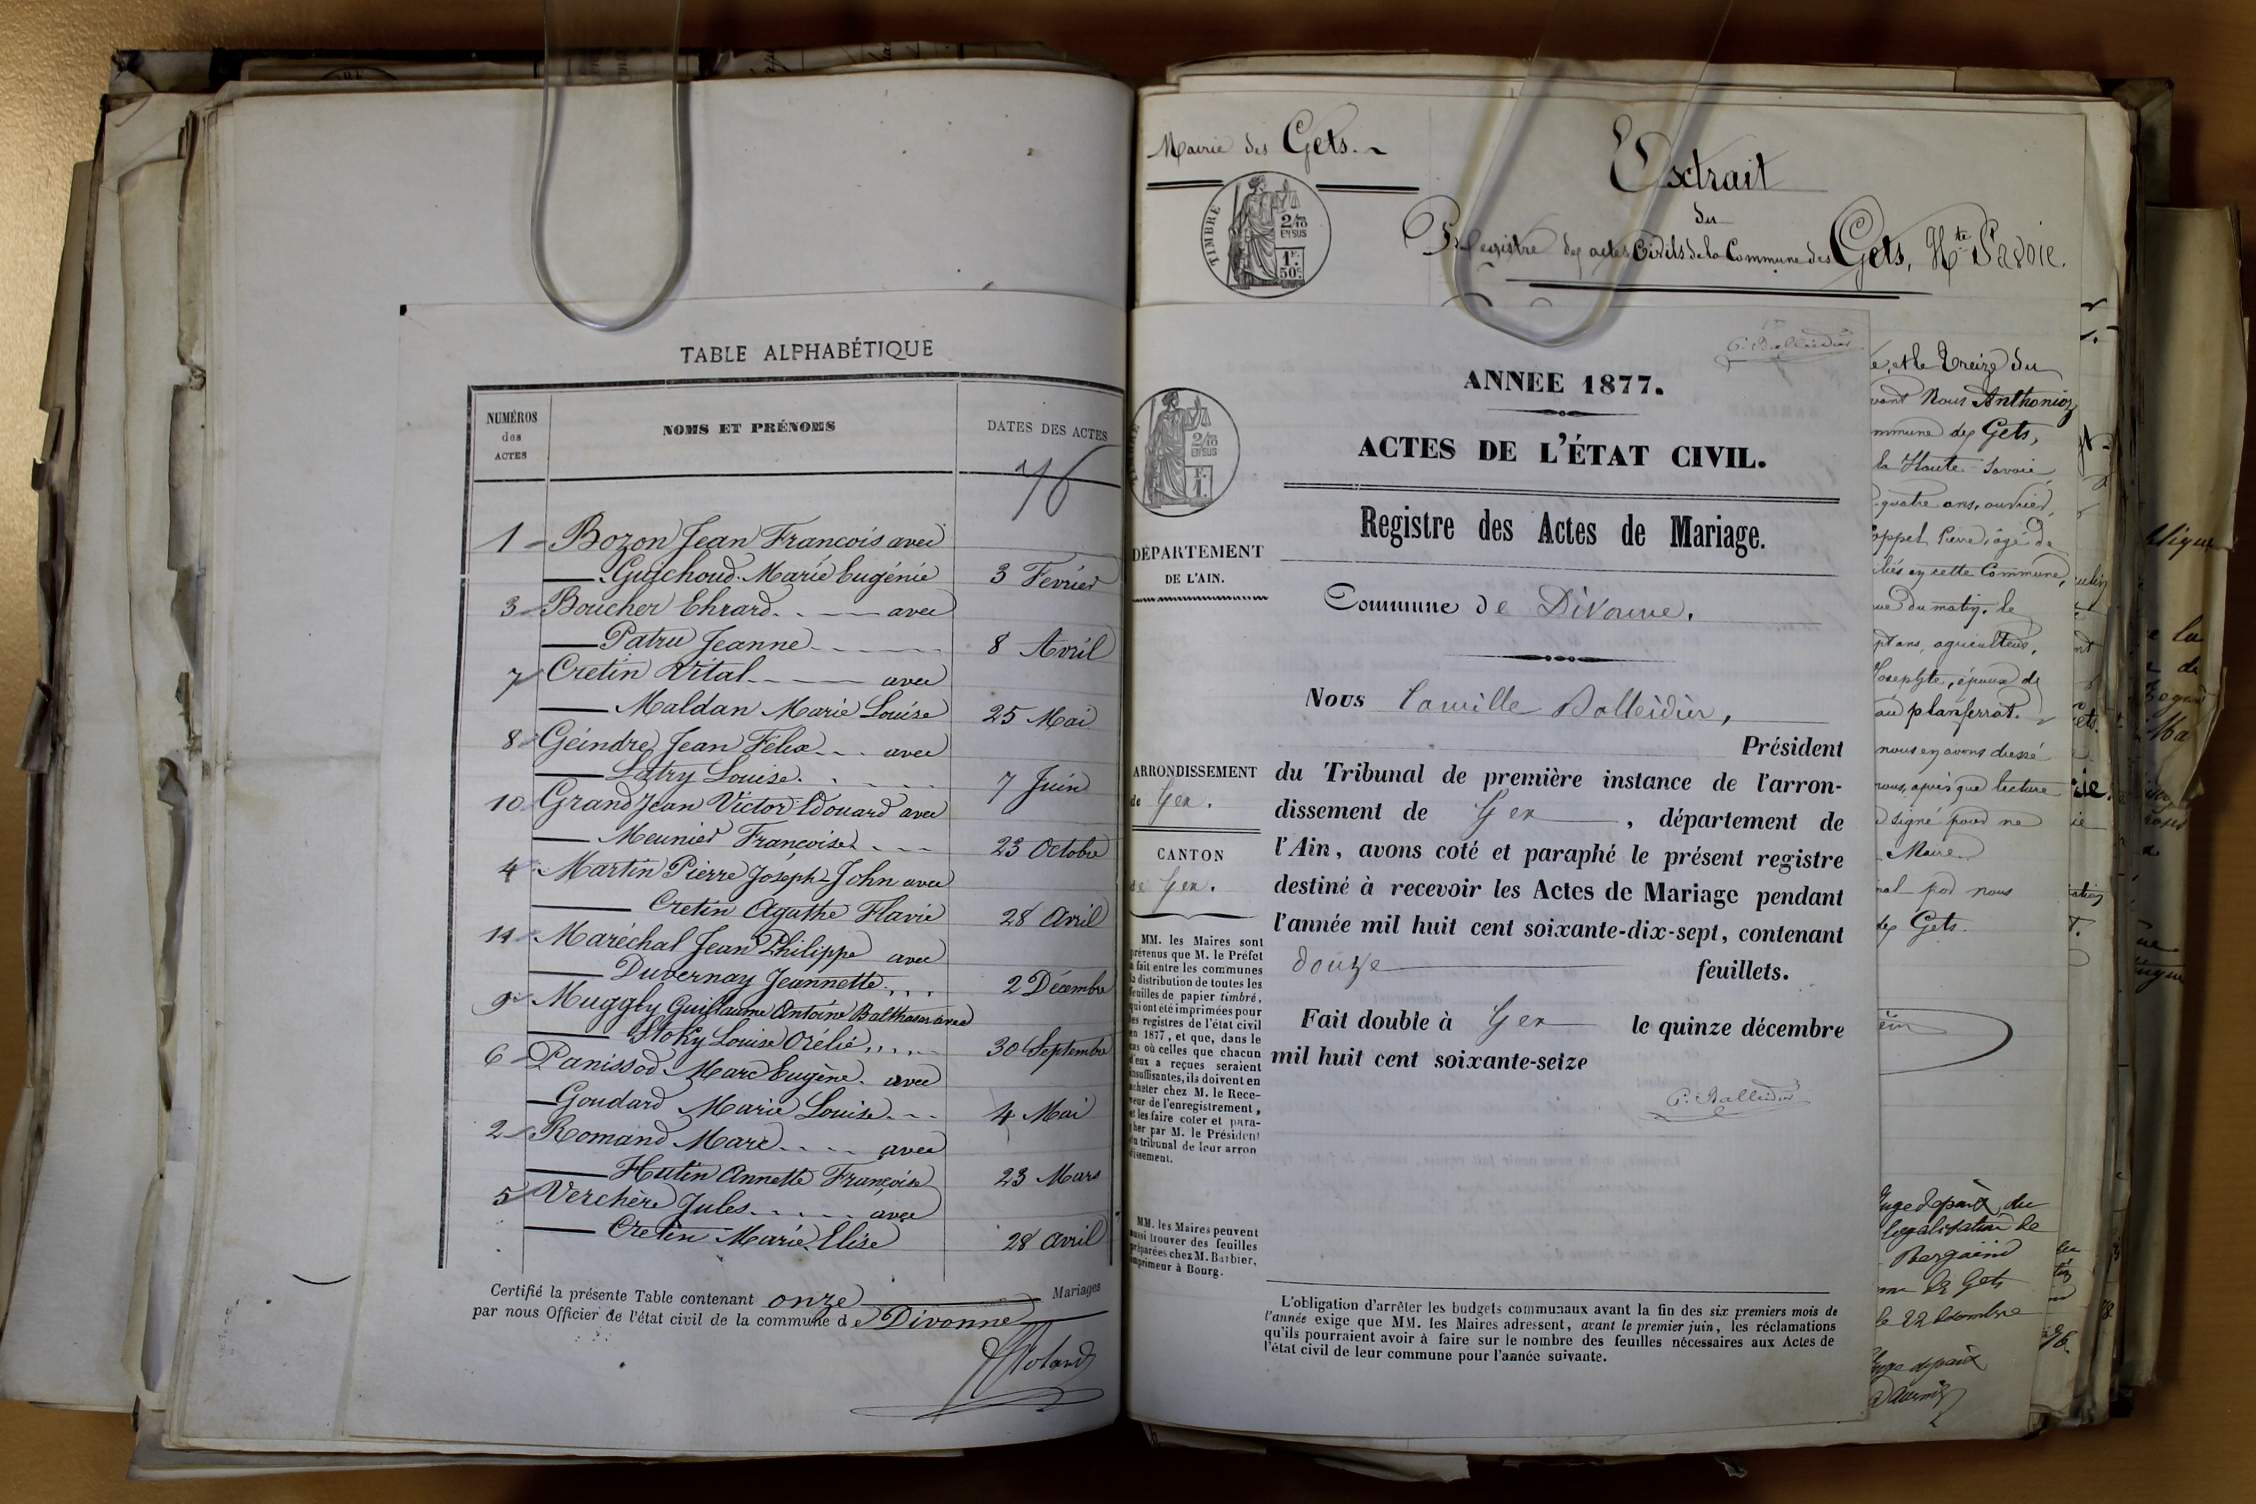 TABLE ALPHABÉTIQUE
NUMÉROS
des
ACTES
NOMS ET PRÉNOMS
DATES DES ACTES
76
1 Bozon Jean Francois avec
Guichoud Marie Eugénie 3 Fevrier
3 Boucher Ehrard avec
Patru Jeanne 8 Avril
7 Cretin Vital avec
Maldan Marie Louise 25 Mai
8 Geindre Jean Félix avec
Latry Louise 7 Juin
10 Grand Jean Victor Edouard avec
Meunier Françoise 23 Octobre
4 Martin Pierre Joseph John avec
Cretin Agathe Flavie 28 Avril
11 Maréchal Jean Philippe avec
Duvernay Jeannette 2 Décembre
9 Muggly Guillaume Antoine Balthasar avec
Stoky Louise Orélie 30 Septembre
6 Panissod Marc Eugène avec
Goudard Marie Louise 4 Mai
2 Romand Marc avec
Hutin Annette Françoise 23 Mars
5 Verchère Jules avec
Cretin Marie Elise 28 Avril
Certifié la présente Table contenant onze Mariages
par nous Officier de l'état civil de la commune de Divonne
Mairie des Gets.
Extrait
du
Registre des actes Civils de la Commune des Gets, Hte Savoie.
TIMBRE
2/10
EN SUS
1F.
50c.
2/10
EN SUS
F.
1.
ANNEE 1877.
ACTES DE L'ÉTAT CIVIL.
Registre des Actes de Mariage.
DÉPARTEMENT
DE L'AIN.
Commune de Divonne.
Nous Camille Balleidier,
Président
du Tribunal de première instance de l'arron-
dissement de Gex, département de
l'Ain, avons coté et paraphé le présent registre
destiné à recevoir les Actes de Mariage pendant
l'année mil huit cent soixante-dix-sept, contenant
douze feuillets.
Fait double à Gex le quinze décembre
mil huit cent soixante-seize
C. Balleidier
ARRONDISSEMENT
de Gex.
CANTON
de Gex.
MM. les Maires sont
prévenus que M. le Préfet
a fait entre les communes
la distribution de toutes les
feuilles de papier timbré,
qui ont été imprimées pour
les registres de l'état civil
en 1877, et que, dans le
cas où celles que chacun
d'eux a reçues seraient
insuffisantes, ils doivent en
acheter chez M. le Rece-
veur de l'enregistrement,
et les faire coter et para-
pher par M. le Président
du tribunal de leur arron
dissement.
MM. les Maires peuvent
aussi trouver des feuilles
préparées chez M. Barbier,
imprimeur à Bourg.
L'obligation d'arrêter les budgets communaux avant la fin des six premiers mois de
l'année exige que MM. les Maires adressent, avant le premier juin, les réclamations
qu'ils pourraient avoir à faire sur le nombre des feuilles nécessaires aux Actes de
l'état civil de leur commune pour l'année suivante.
et le treize du
Nous Anthonioz
des Gets,
la Haute Savoie
quatre ans, ouvrier,
Pierre, âgé de
en cette Commune,
du matin, le
ans, agriculteur,
époux de
nous en avons dressé
nous, après que lecture
signé pour ne
Maire
nous
des Gets.
légalisation de
de Gets
le 22